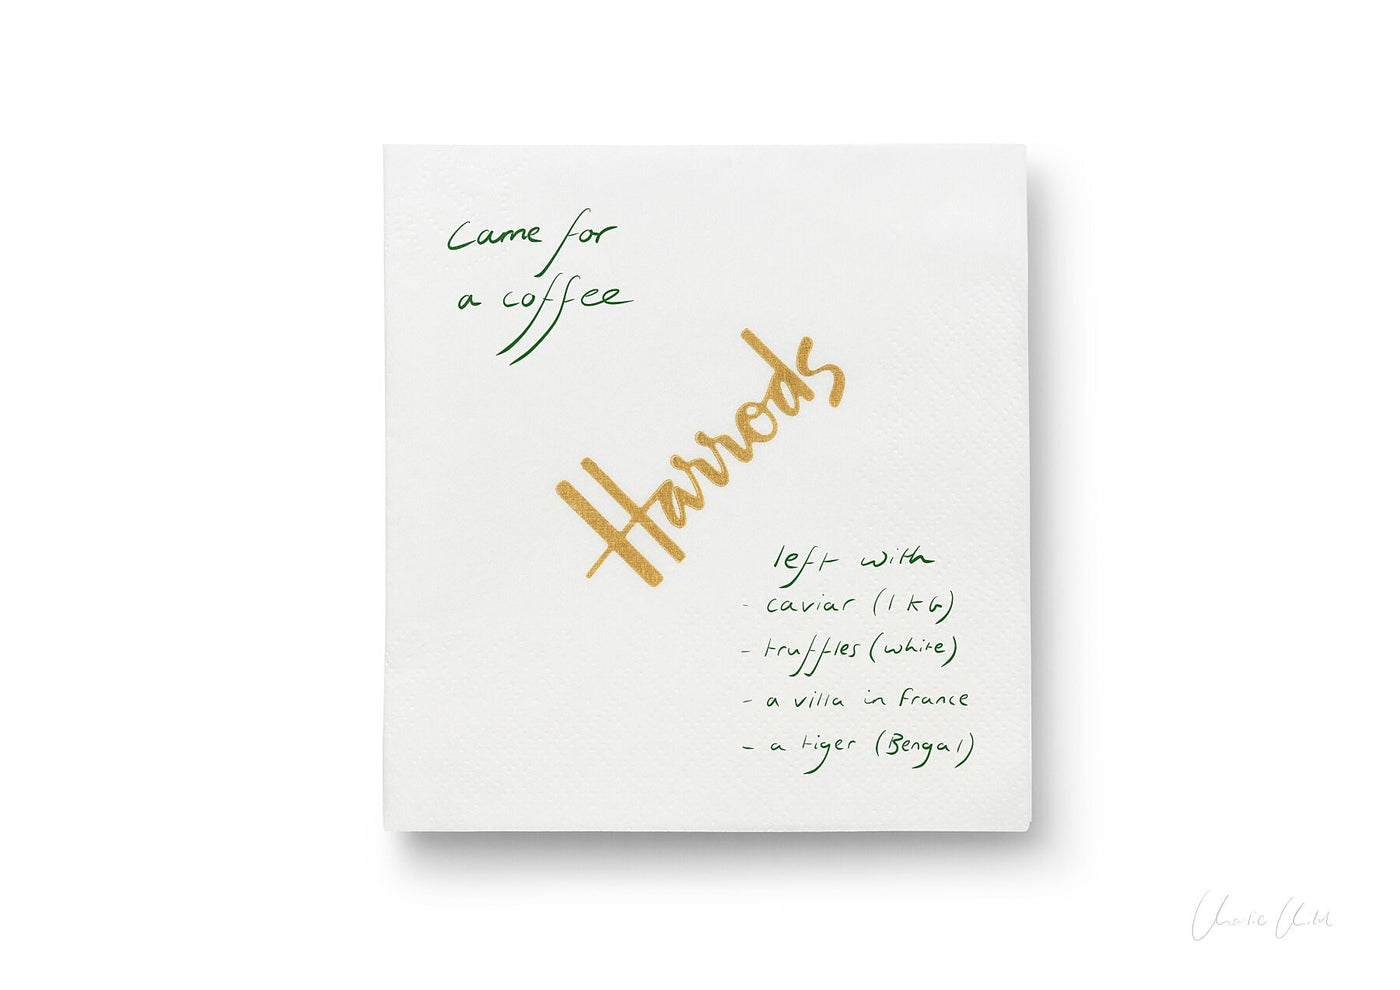 Came for
a coffee
Harrods
left with
- caviar (1 KG)
- truffles (white)
- a villa in France
- a tiger (Bengal)